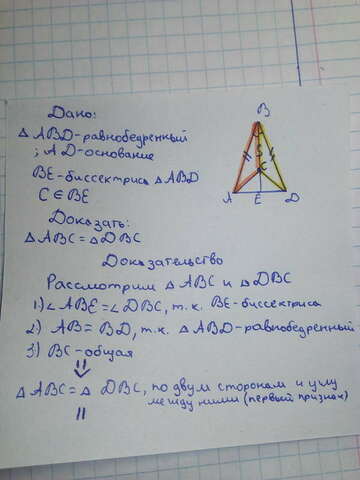 Дано:
△ ABD-равнобедренный
; AD-основание
BE-биссектриса △ ABD
C ∈ BE
Доказать:
△ ABC = △ DBC
Доказательство
Рассмотрим △ ABC и △ DBC
1.) ∠ ABE = ∠ DBC, т.к. BE-биссектриса
2) AB = BD, т.к. △ ABD-равнобедренный
3) BC-общая
⇓
△ ABC = △ DBC, по двум сторонам и углу
между ними (первый признак)
B
C
A E D